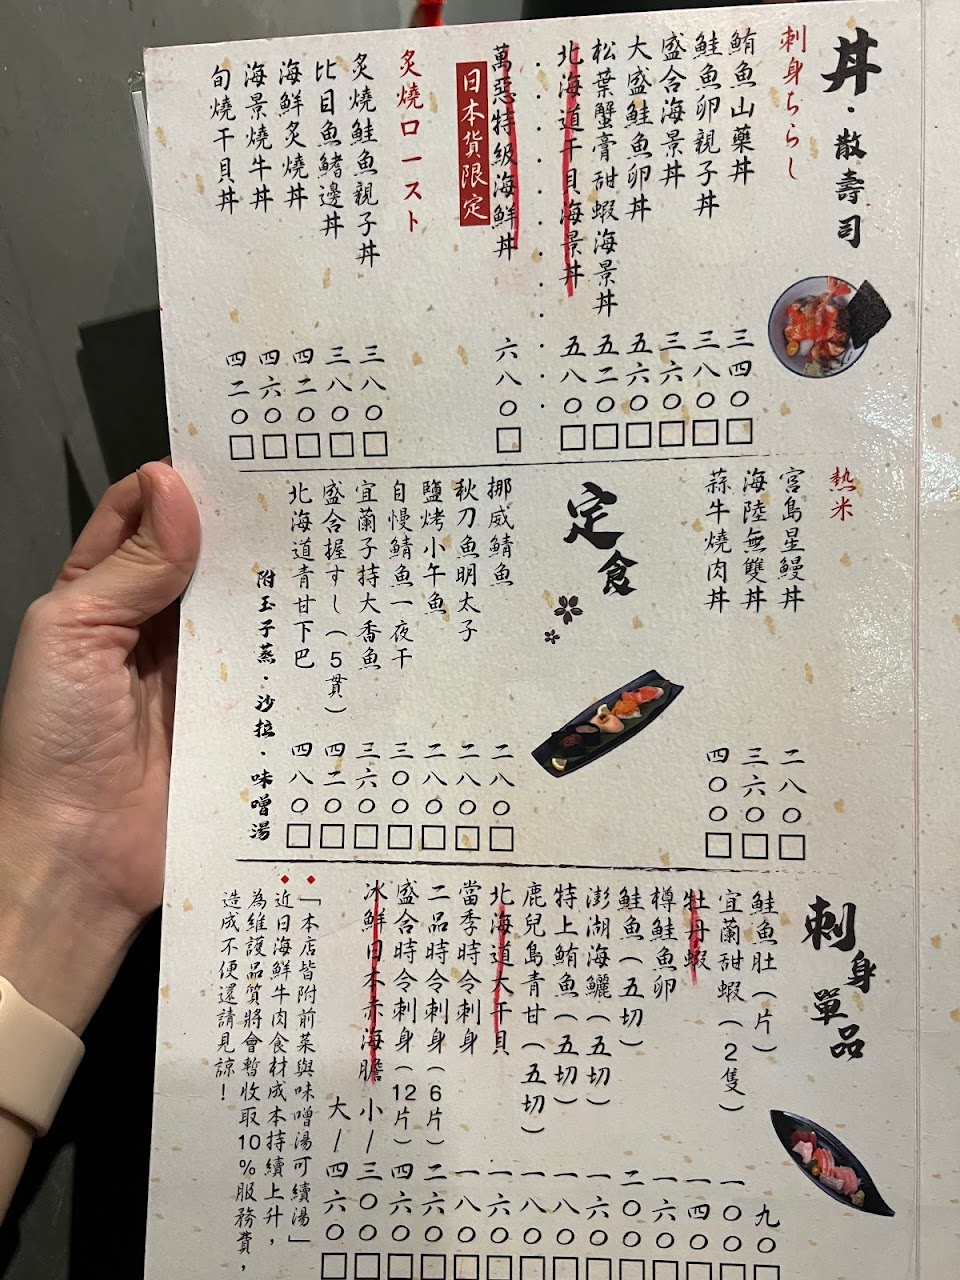 丼・散壽司
刺身ちらし
鮪魚山藥丼 三四〇
鮭魚卵親子丼 三八〇
盛合海景丼 三六〇
大盛鮭魚卵丼 五六〇
松葉蟹膏甜蝦海景丼 五二〇
北海道干貝海景丼 五八〇
萬惡特級海鮮丼 六八〇
日本貨限定
炙燒ロースト
炙燒鮭魚親子丼 三八〇
比目魚鰭邊丼 三八〇
海鮮炙燒丼 四二〇
海景燒牛丼 四六〇
旬燒干貝丼 四二〇
熱米
宮島星鰻丼 二八〇
海陸無雙丼 三六〇
蒜牛燒肉丼 四〇〇
定食
挪威鯖魚 二八〇
秋刀魚明太子 二八〇
鹽烤小午魚 二八〇
自慢鯖魚一夜干 三〇〇
宜蘭子持大香魚 三六〇
盛合握すし(5貫) 四二〇
北海道青甘下巴 四八〇
附玉子蒸・沙拉・味噌湯
刺身單品
鮭魚肚(片) 九〇
宜蘭甜蝦(2隻) 一〇〇
牡丹蝦 一四〇
樽鮭魚卵 一六〇
鮭魚(五切) 二〇〇
澎湖海鱺(五切) 一六〇
特上鮪魚(五切) 一八〇
鹿兒島青甘(五切) 一八〇
北海道大干貝 一六〇
當季時令刺身 一八〇
二品時令刺身(6片) 二六〇
盛合時令刺身(12片) 四六〇
冰鮮日本赤海膽 小/三〇〇
大/四六〇
「本店皆附前菜與味噌湯可續湯」
近日海鮮牛肉食材成本持續上升,
為維護品質將會暫收取10%服務費,
造成不便還請見諒!